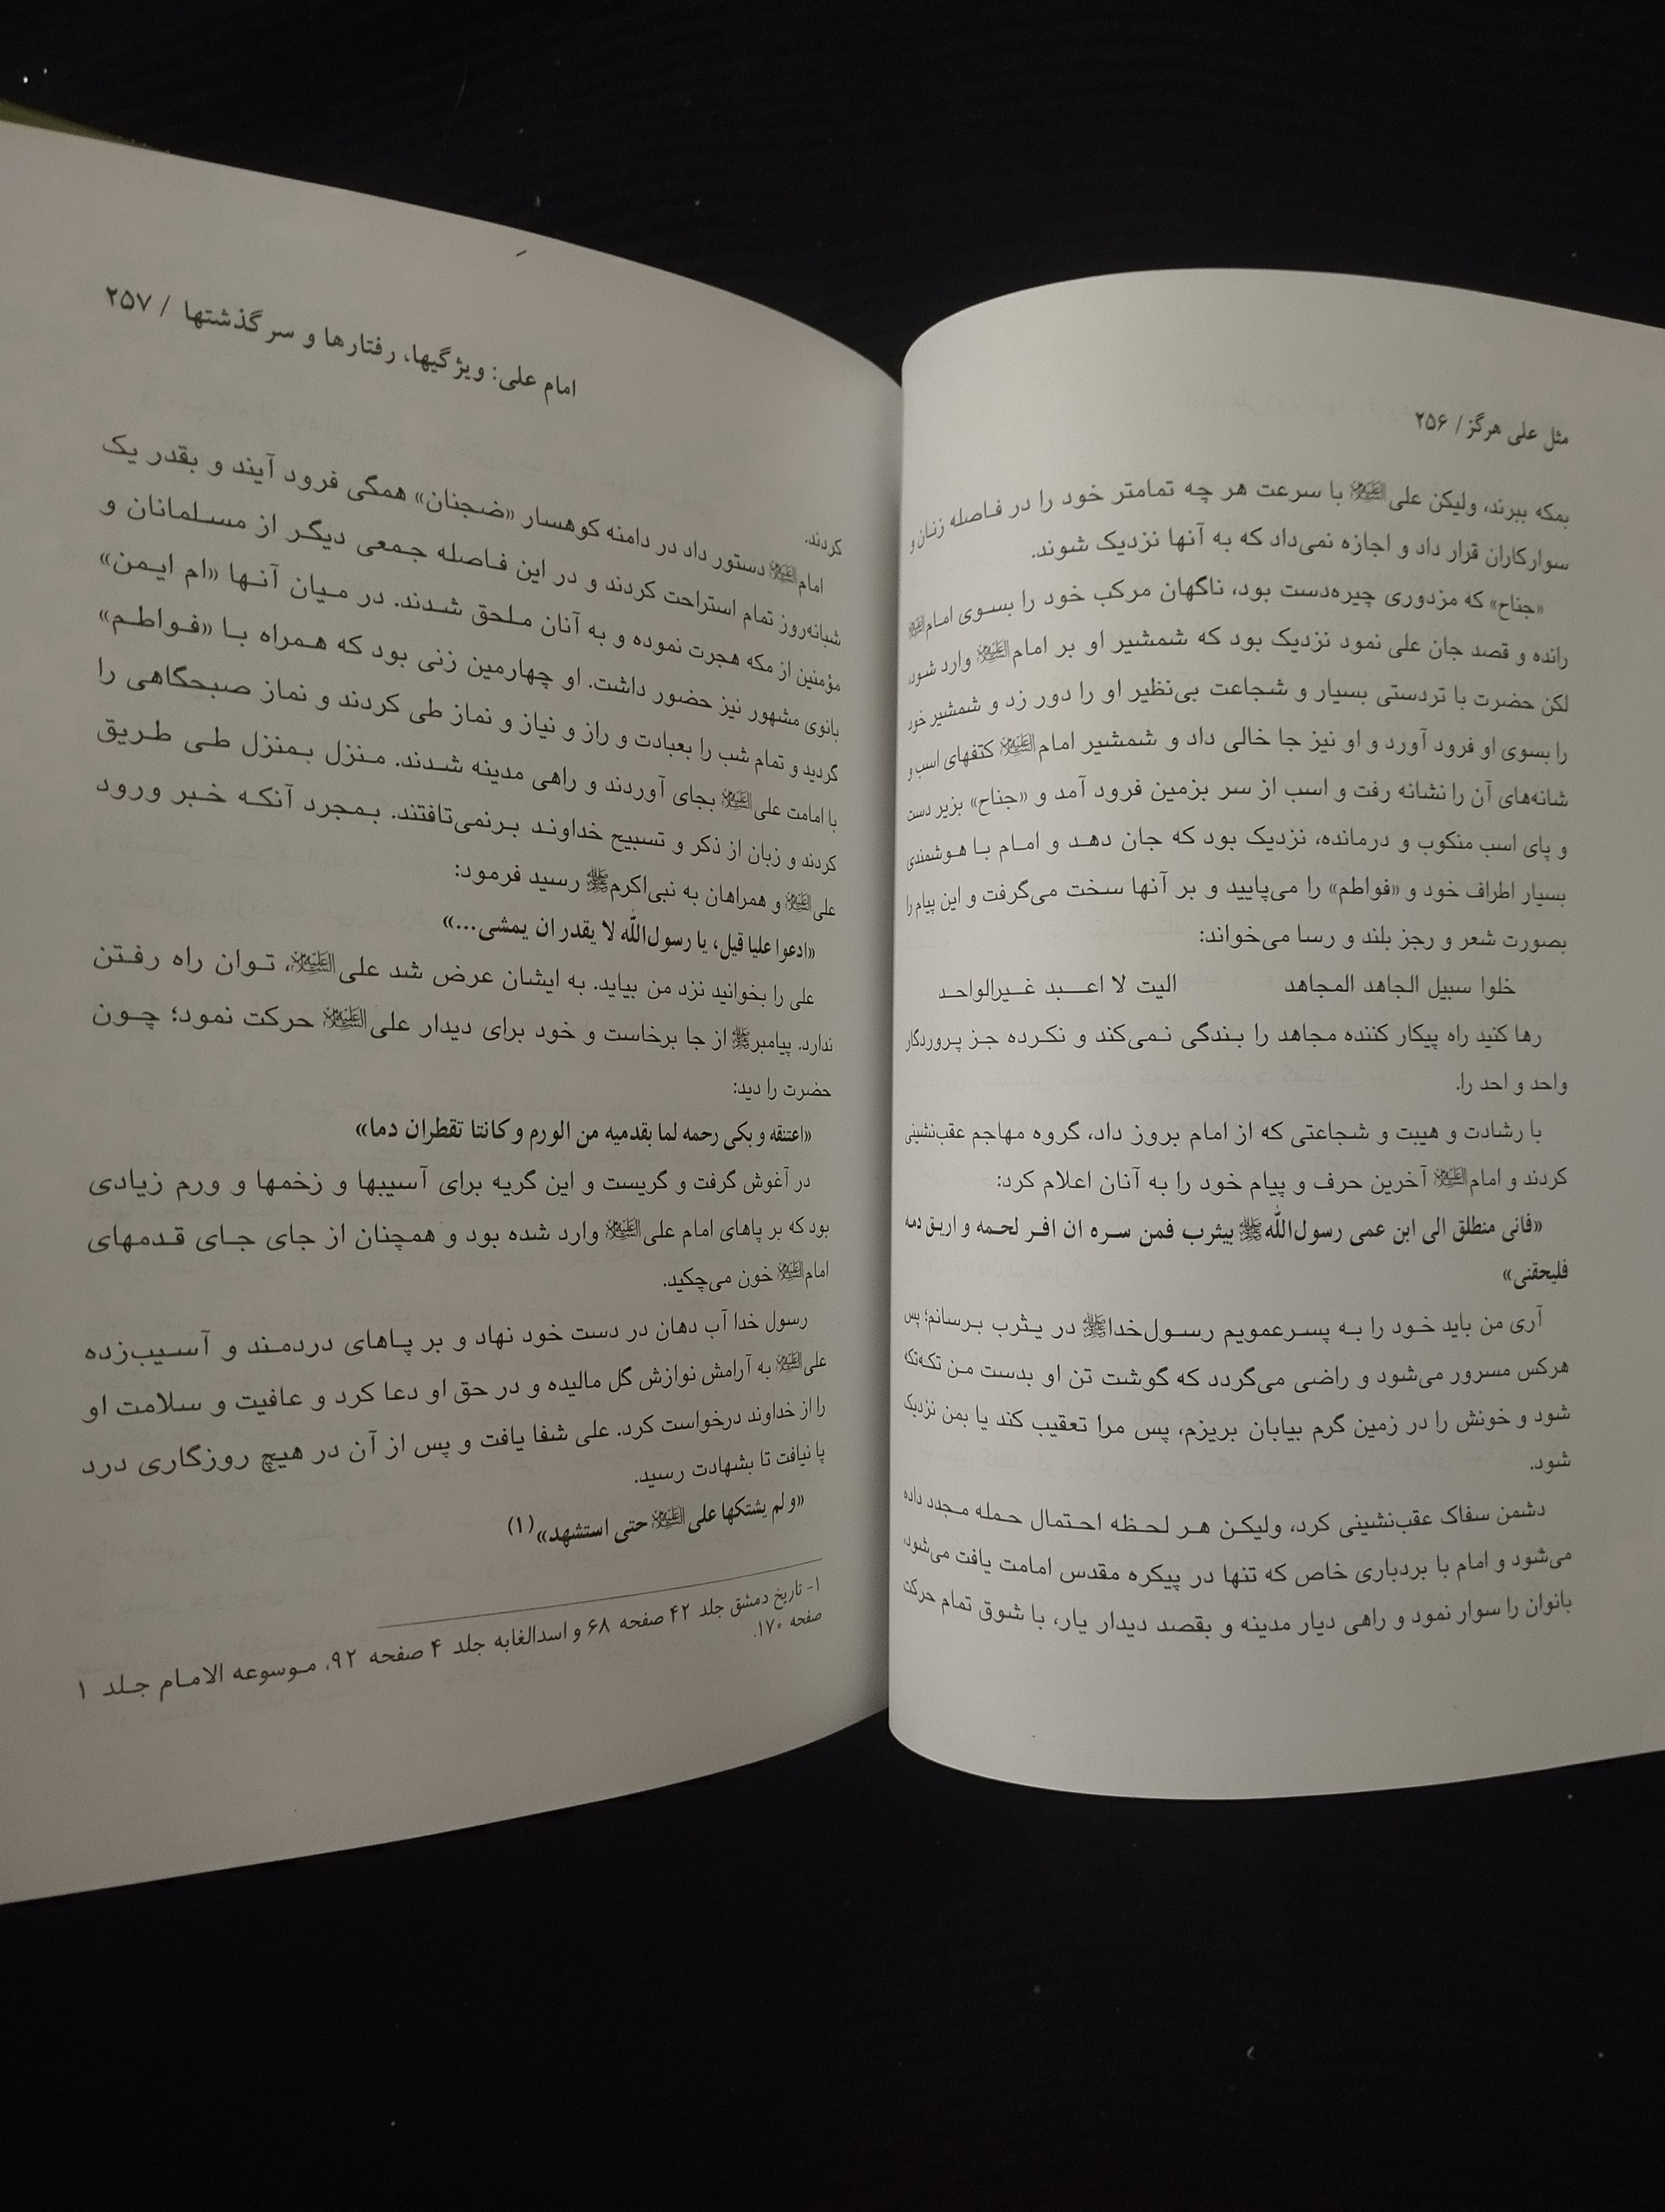 مثل علی هرگز / ۲۵۶
بمکه ببرند، ولیکن علی علیه‌السلام با سرعت هر چه تمامتر خود را در فاصله زنان و
سوارکاران قرار داد و اجازه نمی‌داد که به آنها نزدیک شوند.
«جناح» که مزدوری چیره‌دست بود، ناگهان مرکب خود را بسوی امام علیه‌السلام
رانده و قصد جان علی نمود نزدیک بود که شمشیر او بر امام علیه‌السلام وارد شود،
لکن حضرت با تردستی بسیار و شجاعت بی‌نظیر او را دور زد و شمشیر خود
را بسوی او فرود آورد و او نیز جا خالی داد و شمشیر امام علیه‌السلام کتفهای اسب و
شانه‌های آن را نشانه رفت و اسب از سر بزمین فرود آمد و «جناح» بزیر دست
و پای اسب منکوب و درمانده، نزدیک بود که جان دهد و امام با هوشمندی
بسیار اطراف خود و «فواطم» را می‌پایید و بر آنها سخت می‌گرفت و این پیام را
بصورت شعر و رجز بلند و رسا می‌خواند:
خلوا سبیل الجاهد المجاهد الیت لا اعبد غیرالواحد
رها کنید راه پیکار کننده مجاهد را بندگی نمی‌کند و نکرده جز پروردگار
واحد و احد را.
با رشادت و هیبت و شجاعتی که از امام بروز داد، گروه مهاجم عقب‌نشینی
کردند و امام علیه‌السلام آخرین حرف و پیام خود را به آنان اعلام کرد:
«فانی منطلق الی ابن عمی رسول‌الله ﷺ بیثرب فمن سره ان افر لحمه و اریق دمه
فلیحقنی»
آری من باید خود را به پسرعمویم رسول‌خدا ﷺ در یثرب برسانم؛ پس
هرکس مسرور می‌شود و راضی می‌گردد که گوشت تن او بدست من تکه‌تکه
شود و خونش را در زمین گرم بیابان بریزم، پس مرا تعقیب کند یا بمن نزدیک
شود.
دشمن سفاک عقب‌نشینی کرد، ولیکن هر لحظه احتمال حمله مجدد داده
می‌شود و امام با بردباری خاص که تنها در پیکره مقدس امامت یافت می‌شود،
بانوان را سوار نمود و راهی دیار مدینه و بقصد دیدار یار، با شوق تمام حرکت
امام علی: ویژگیها، رفتارها و سرگذشتها / ۲۵۷
کردند.
امام علیه‌السلام دستور داد در دامنه کوهسار «ضجنان» همگی فرود آیند و بقدر یک
شبانه‌روز تمام استراحت کردند و در این فاصله جمعی دیگر از مسلمانان و
مؤمنین از مکه هجرت نموده و به آنان ملحق شدند. در میان آنها «ام ایمن»
بانوی مشهور نیز حضور داشت. او چهارمین زنی بود که همراه با «فواطم»
گردید و تمام شب را بعبادت و راز و نیاز و نماز طی کردند و نماز صبحگاهی را
با امامت علی علیه‌السلام بجای آوردند و راهی مدینه شدند. منزل بمنزل طی طریق
کردند و زبان از ذکر و تسبیح خداوند برنمی‌تافتند. بمجرد آنکه خبر ورود
علی علیه‌السلام و همراهان به نبی‌اکرم ﷺ رسید فرمود:
«ادعوا علیا قیل، یا رسول‌الله لا یقدر ان یمشی...»
علی را بخوانید نزد من بیاید. به ایشان عرض شد علی علیه‌السلام، توان راه رفتن
ندارد. پیامبر ﷺ از جا برخاست و خود برای دیدار علی علیه‌السلام حرکت نمود؛ چون
حضرت را دید:
«اعتنقه و بکی رحمه لما بقدمیه من الورم و کانتا تقطران دما»
در آغوش گرفت و گریست و این گریه برای آسیبها و زخمها و ورم زیادی
بود که بر پاهای امام علی علیه‌السلام وارد شده بود و همچنان از جای جای قدمهای
امام علیه‌السلام خون می‌چکید.
رسول خدا آب دهان در دست خود نهاد و بر پاهای دردمند و آسیب‌زده
علی علیه‌السلام به آرامش نوازش گل مالیده و در حق او دعا کرد و عافیت و سلامت او
را از خداوند درخواست کرد. علی شفا یافت و پس از آن در هیچ روزگاری درد
پا نیافت تا بشهادت رسید.
«و لم یشتکها علی علیه‌السلام حتی استشهد» (۱)
۱- تاریخ دمشق جلد ۴۲ صفحه ۶۸ و اسدالغابه جلد ۴ صفحه ۹۲، موسوعه الامام جلد ۱
صفحه ۱۷۰.